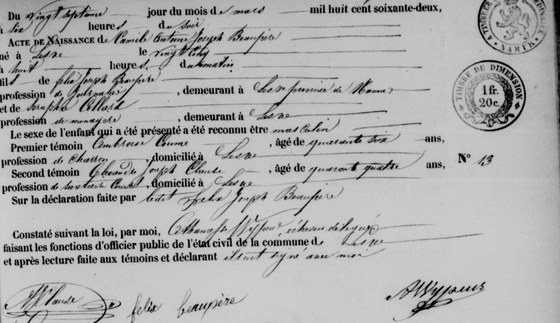 Du vingt septième jour du mois de mars mil huit cent soixante-deux,
à six heures du soir
ACTE DE NAISSANCE de Camile Antoine Joseph Beaupère
né à Lesve le vingt
à huit heures du matin
fils de Félix Joseph Beaupère
profession de demeurant à Lesve province de Namur
et de Seraphie
profession de ménagère demeurant à Lesve
Le sexe de l'enfant qui a été présenté a été reconnu être masculin
Premier témoin Ambroise âgé de quarante six ans,
profession de domicilié à Lesve N° 13
Second témoin Alexandre Joseph Claude, âgé de quarante quatre ans,
profession de domicilié à Lesve
Sur la déclaration faite par ledit Félix Joseph Beaupère
Constaté suivant la loi, par moi, échevin délégué
faisant les fonctions d'officier public de l'état civil de la commune de Lesve
et après lecture faite aux témoins et déclarant ils ont signé avec moi
félix beaupère
TIMBRE DE DIMENSION
1 fr.
20 c.
NAMUR